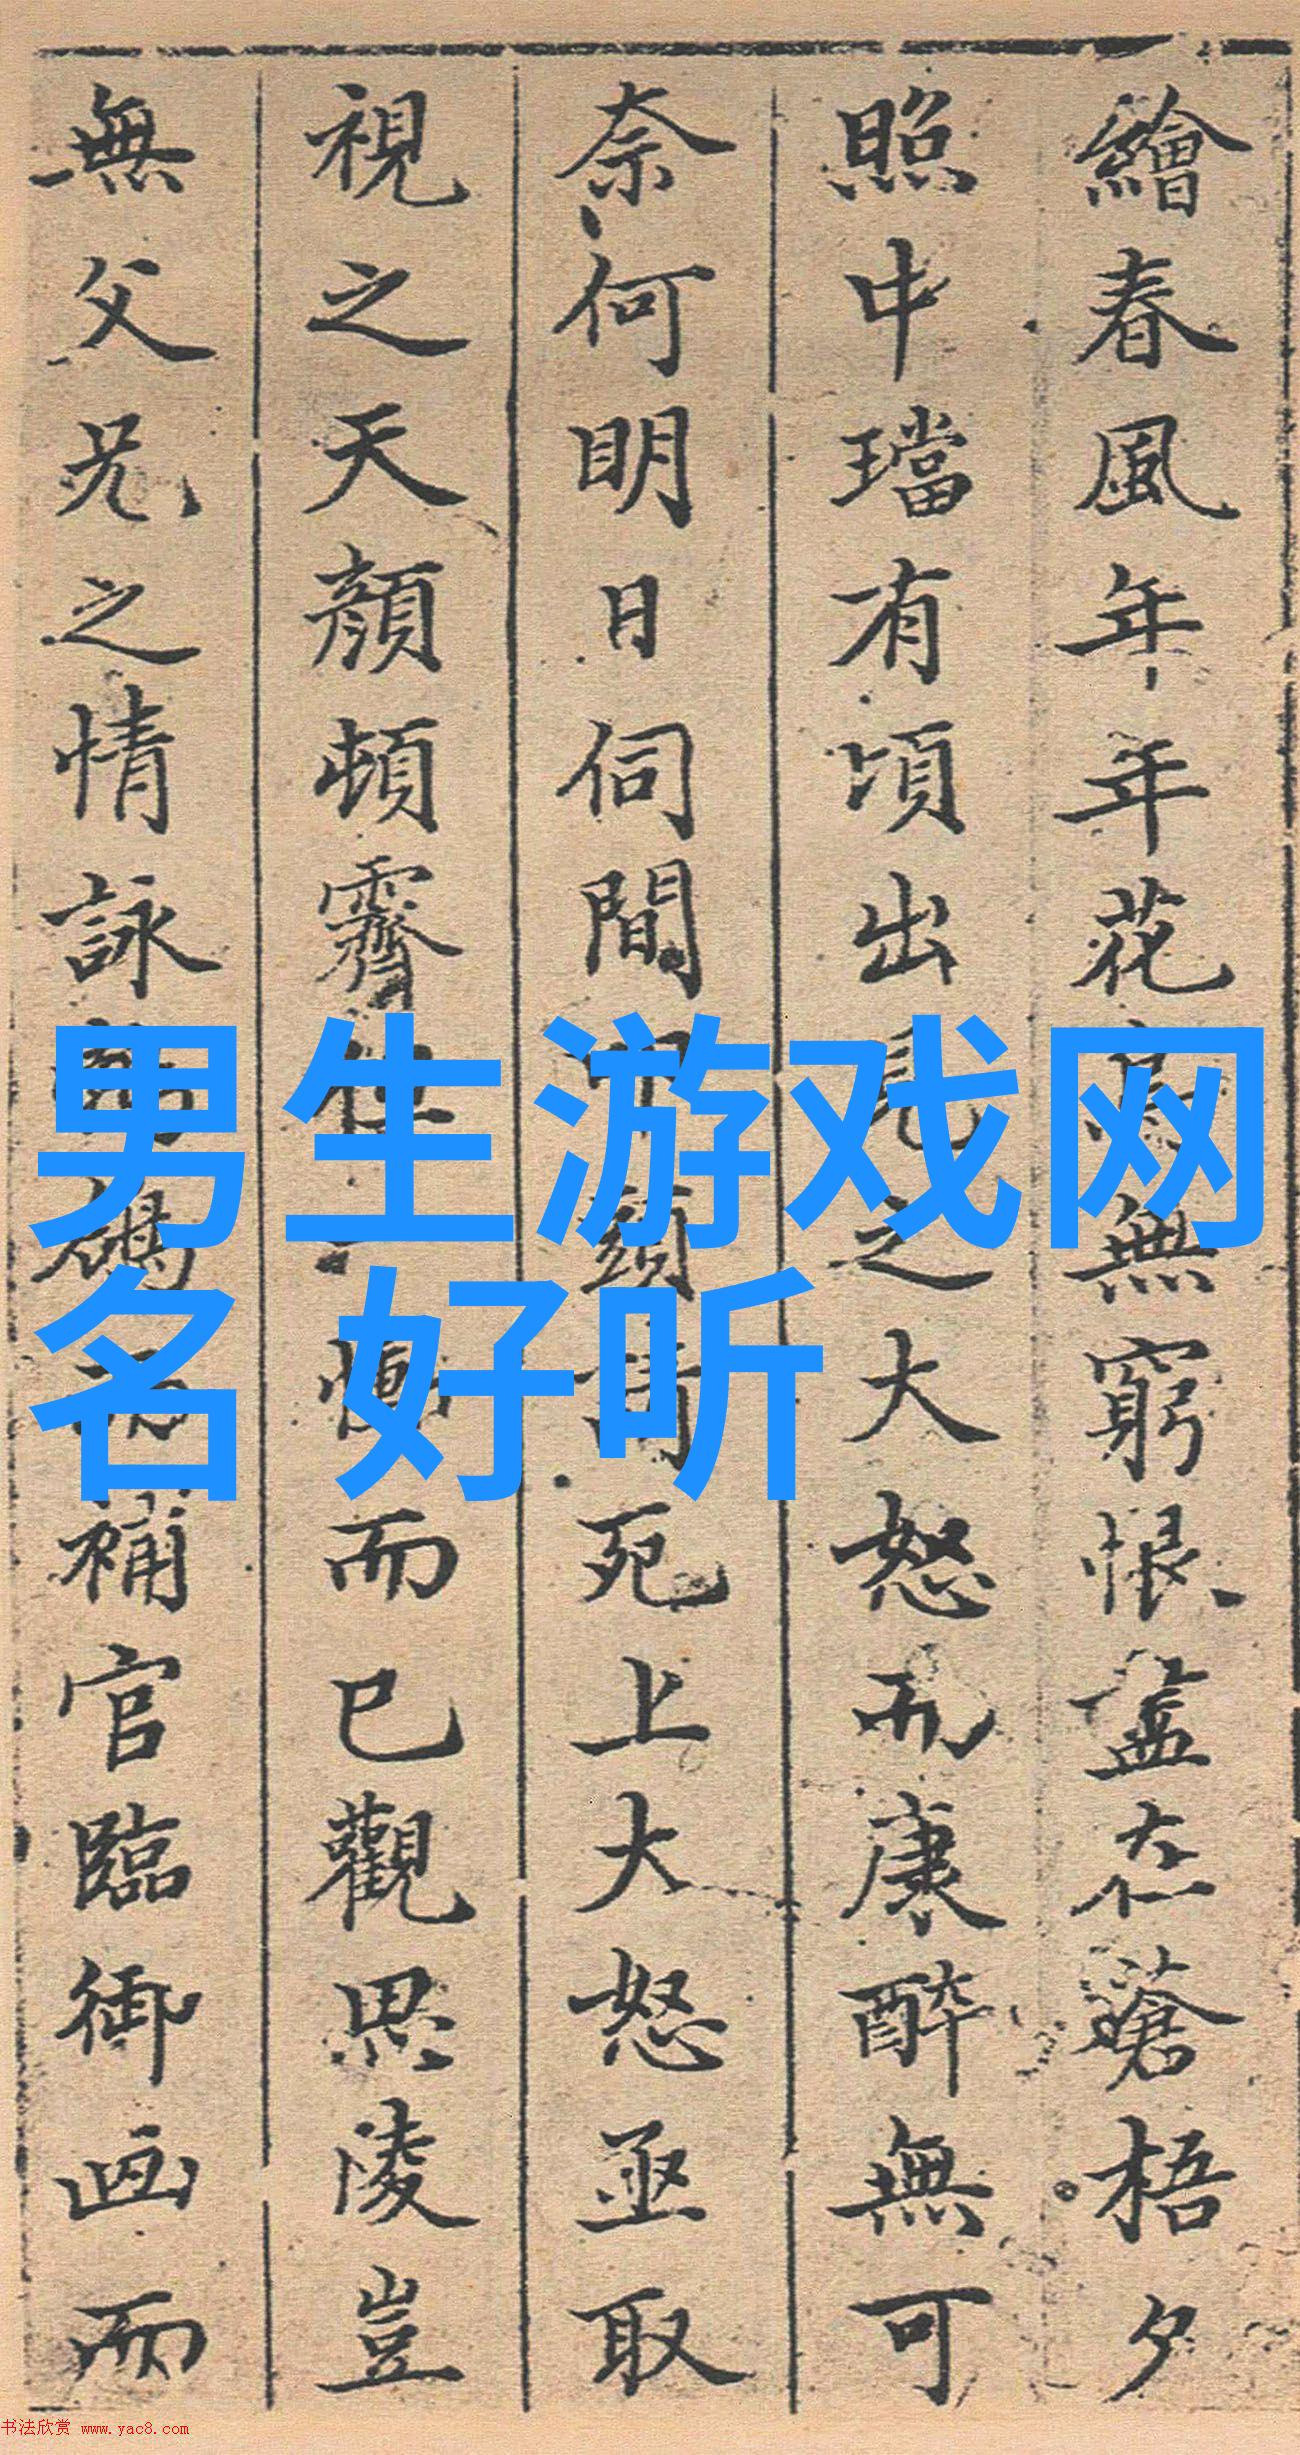 繪春風年年花無窮恨盡在蒼梧夕
照中璫有頃出見之大怒而康醉無可
奈何明日伺間叩頭請死上大怒亟取
視之天顔頓霽但慟而已觀思陵豈
無父兄之情詠碣補官臨御画而
男生游戏网
名 好听
书法欣赏 www.yac8.com